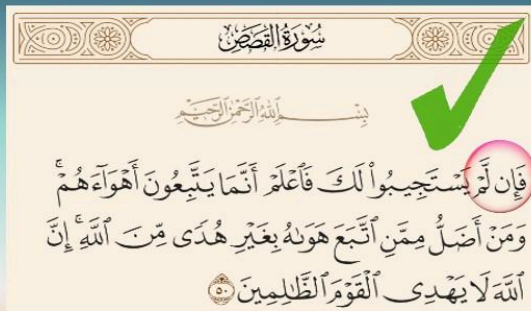 سُورَةُ القَصَصِ
بِسْمِ اللَّهِ الرَّحْمَٰنِ الرَّحِيمِ
فَإِن لَّمْ يَسْتَجِيبُوا۟ لَكَ فَٱعْلَمْ أَنَّمَا يَتَّبِعُونَ أَهْوَآءَهُمْ ۚ
وَمَنْ أَضَلُّ مِمَّنِ ٱتَّبَعَ هَوَىٰهُ بِغَيْرِ هُدًى مِّنَ ٱللَّهِ ۚ إِنَّ
ٱللَّهَ لَا يَهْدِى ٱلْقَوْمَ ٱلظَّٰلِمِينَ ٥٠